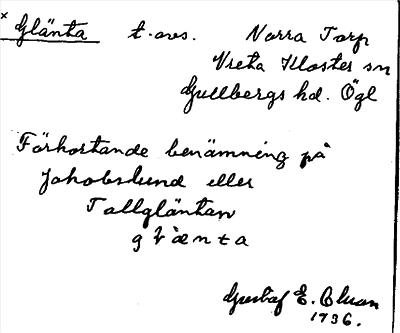 × Glänta t. avs. Norra Torp
Vreta Kloster sn
Gullbergs hd. Ögl
Förkortande benämning på
Jakobslund eller
Tallgläntan
Gustaf E. Olsson
1936.